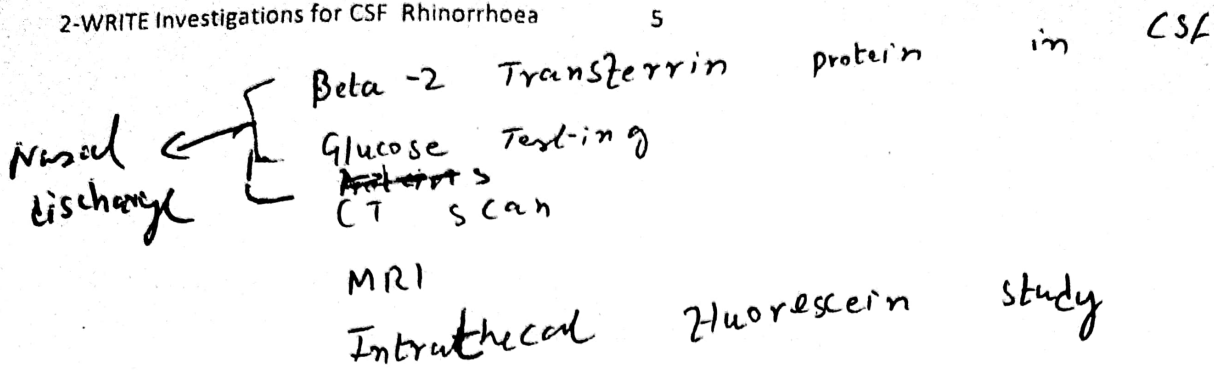 2-WRITE Investigations for CSF Rhinorrhoea 5
Beta -2 Transferrin protein in CSF
Nasal discharge
Glucose Testing
CT scan
MRI
Intrathecal Fluorescein study